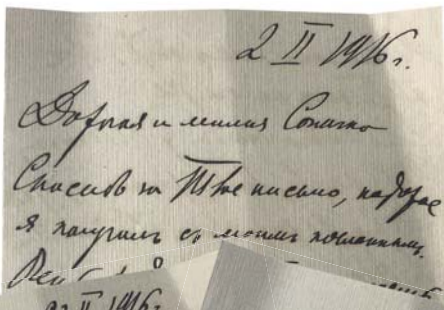 2 II 1916 г.
Дорогая и милая Сонечка
Спасибо за Твое письмо, которое
я получилъ съ моимъ посланнымъ.
22 II 1916 г.